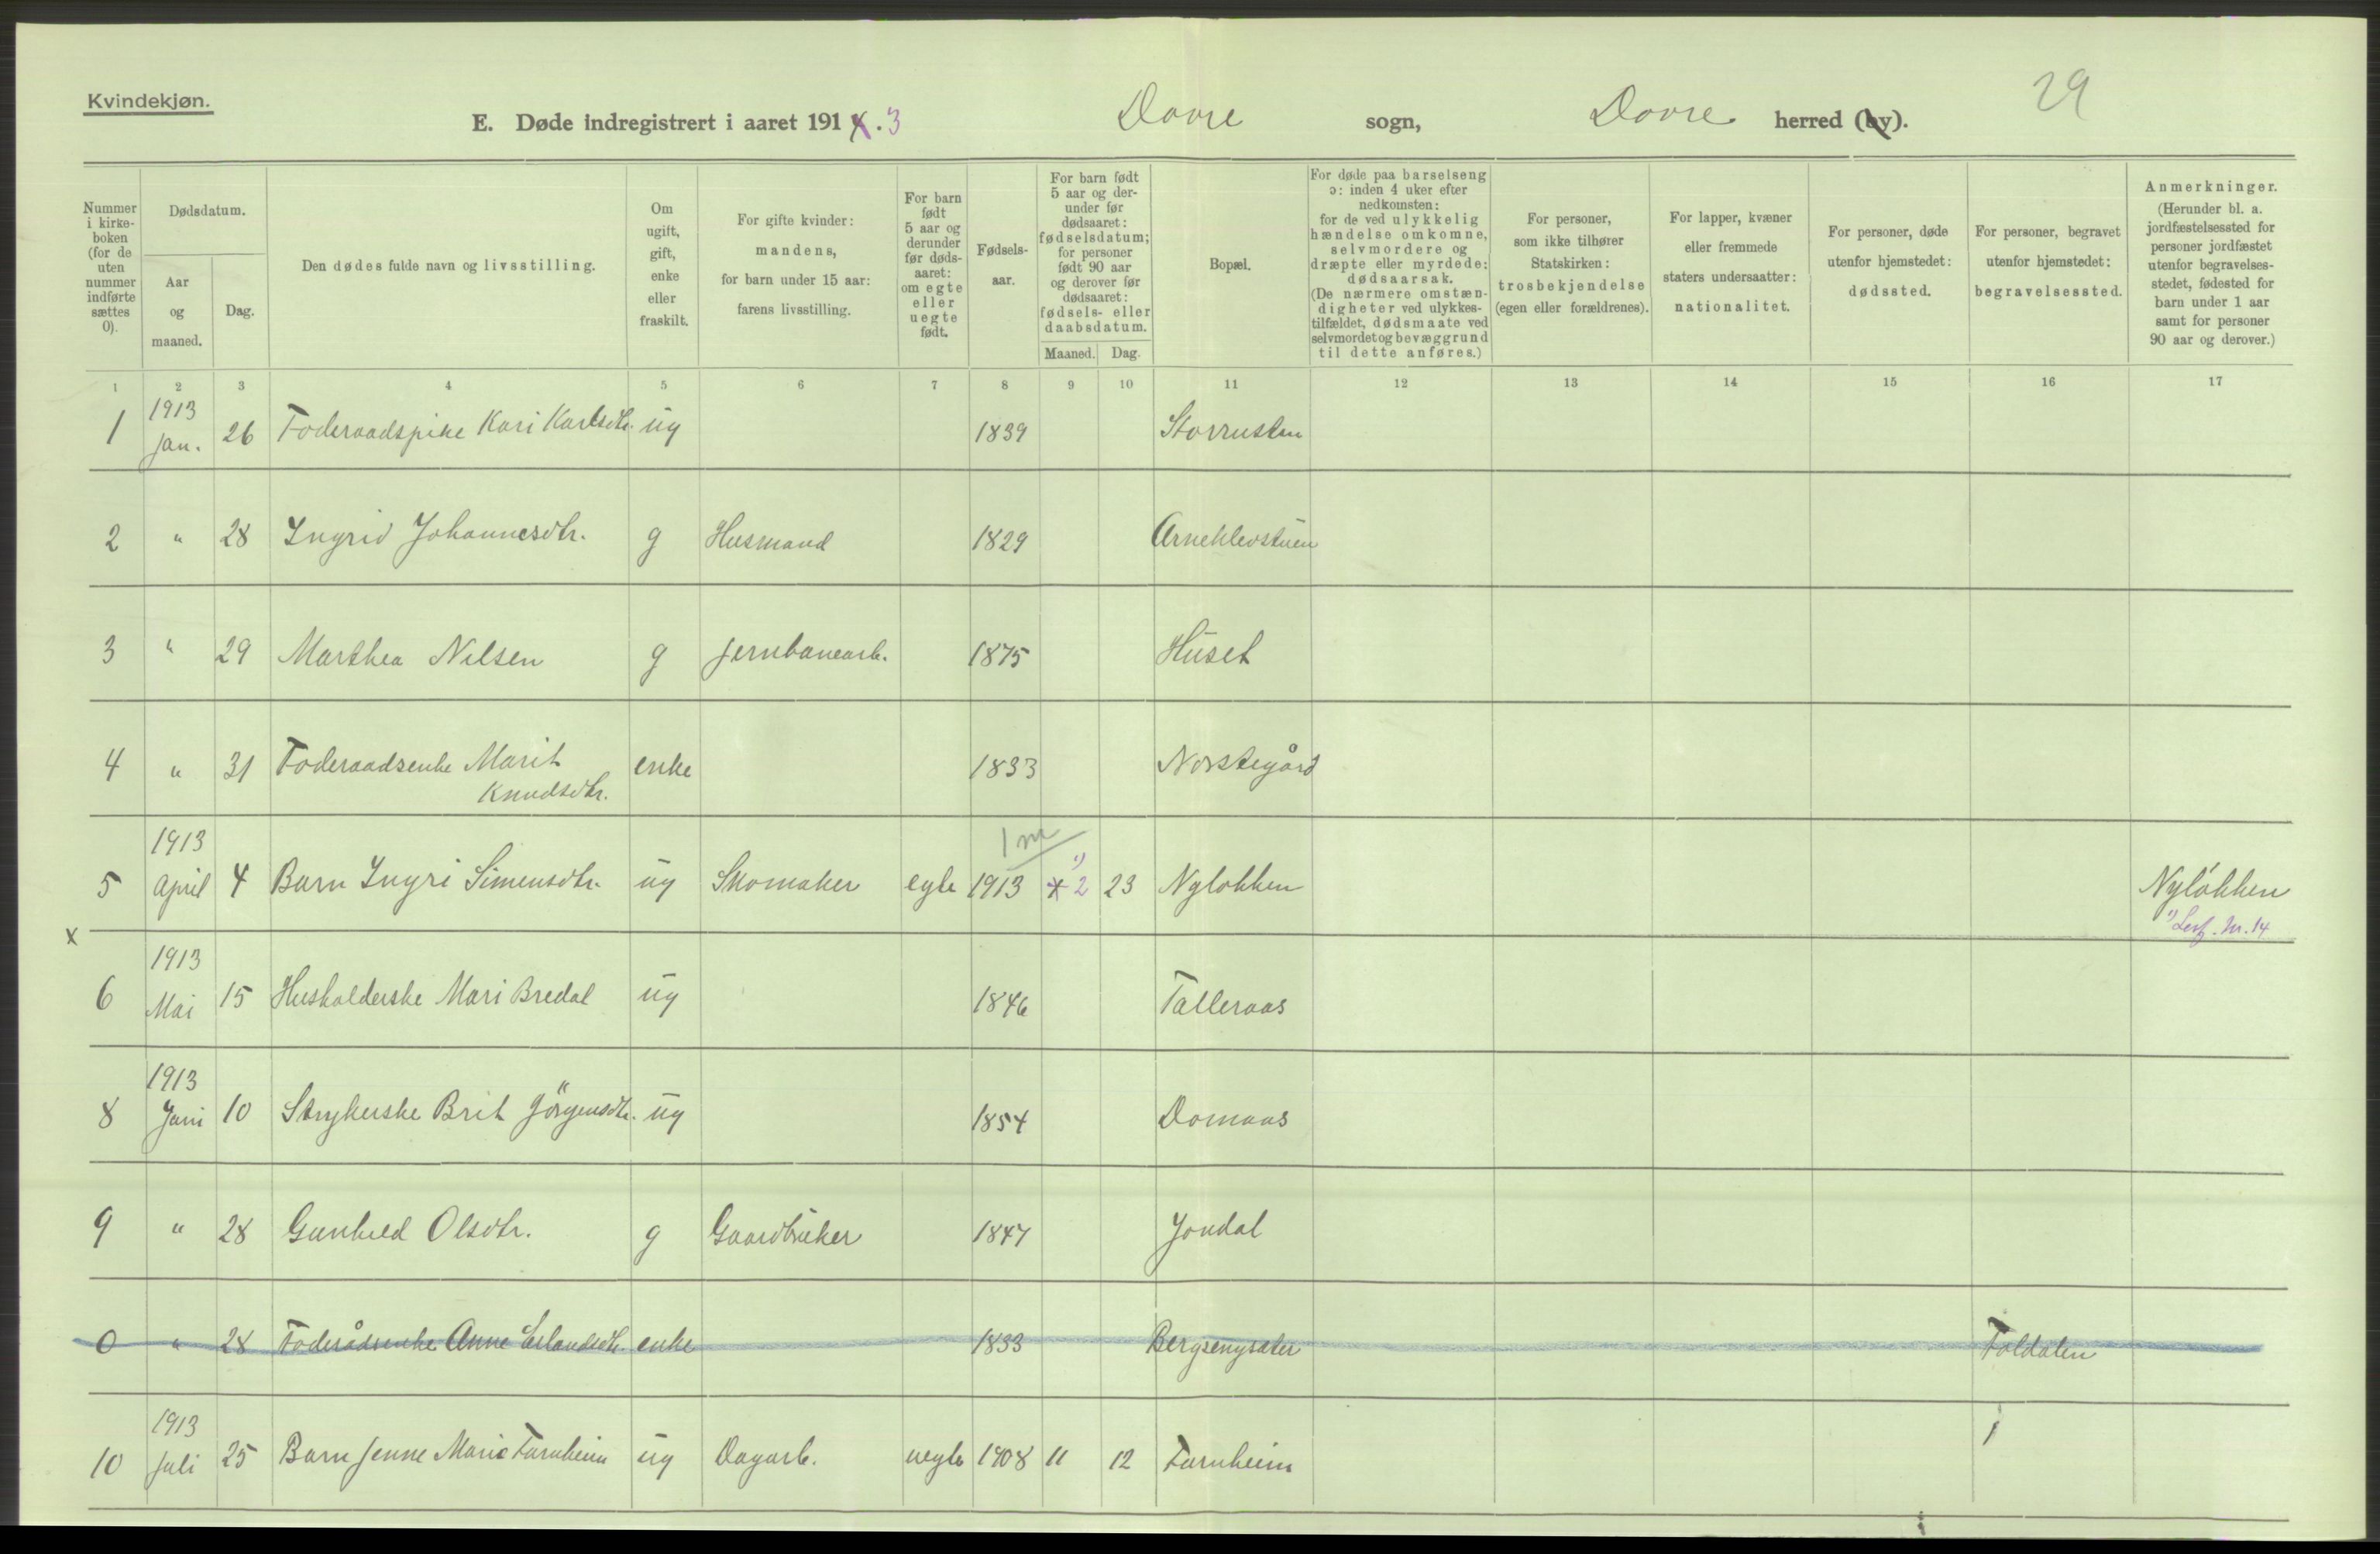 Kvindekjøn.
E. Døde indregistrert i aaret 191 . 3 Dovre sogn, Dovre herred (by). 29
Nummer i kirke- boken (for de uten nummer indførte sættes 0).
Dødsdatum.
Aar og maaned.
Dag.
Den dødes fulde navn og livsstilling.
Om ugift, gift, enke eller fraskilt.
For gifte kvinder: mandens, for barn under 15 aar: farens livsstilling.
For barn født 5 aar og derunder før døds- aaret: om egte eller uegte født.
Fødsels- aar.
For barn født 5 aar og der- under før dødsaaret: fødselsdatum; for personer født 90 aar og derover før dødsaaret: fødsels- eller daabsdatum.
Maaned. Dag.
Bopæl.
For døde paa barselseng ɔ: inden 4 uker efter nedkomsten: for de ved ulykkelig hændelse omkomne, selvmordere og dræpte eller myrdede: dødsaarsak. (De nærmere omstæn- digheter ved ulykkes- tilfældet, dødsmaate ved selvmordet og bevæggrund til dette anføres.)
For personer, som ikke tilhører Statskirken: trosbekjendelse (egen eller forældrenes).
For lapper, kvæner eller fremmede staters undersaatter: nationalitet.
For personer, døde utenfor hjemstedet: dødssted.
For personer, begravet utenfor hjemstedet: begravelsessted.
Anmerkninger. (Herunder bl. a. jordfæstelsessted for personer jordfæstet utenfor begravelses- stedet, fødested for barn under 1 aar samt for personer 90 aar og derover.)
1 2 3 4 5 6 7 8 9 10 11 12 13 14 15 16 17
1913
1 Jan. 26 Foderaadspike Kari Karlsdtr. ug 1839 Storrusten
2 " 28 Ingrid Johannesdtr. g Husmand 1829 Arneklevstuen
3 " 29 Marthea Nilsen g Jernbanearb. 1875 Huset
4 " 31 Foderaadsenke Marit enke 1833 Norstegård
Knudsdtr.
1913 1 m
5 April 4 Barn Ingri Simensdtr. ug Skomaker egte 1913 1) 2 23 Nyløkken Nyløkken
x 1) Lesf. Nr. 14
1913
6 Mai 15 Husholderske Mari Bredal ug 1846 Talleraas
1913
8 Juni 10 Strykerske Brit Jörgensdtr. ug 1854 Domaas
9 " 28 Gunhild Olsdtr. g Gaardbruker 1847 Jondal
0 " 28 Foderådsenke Anne Erlandsdtr. enke 1833 Bergsenysæter Foldalen
1913
10 Juli 25 Barn Jenne Marie Furuheim ug Dagarb. uegte 1908 11 12 Furuheim